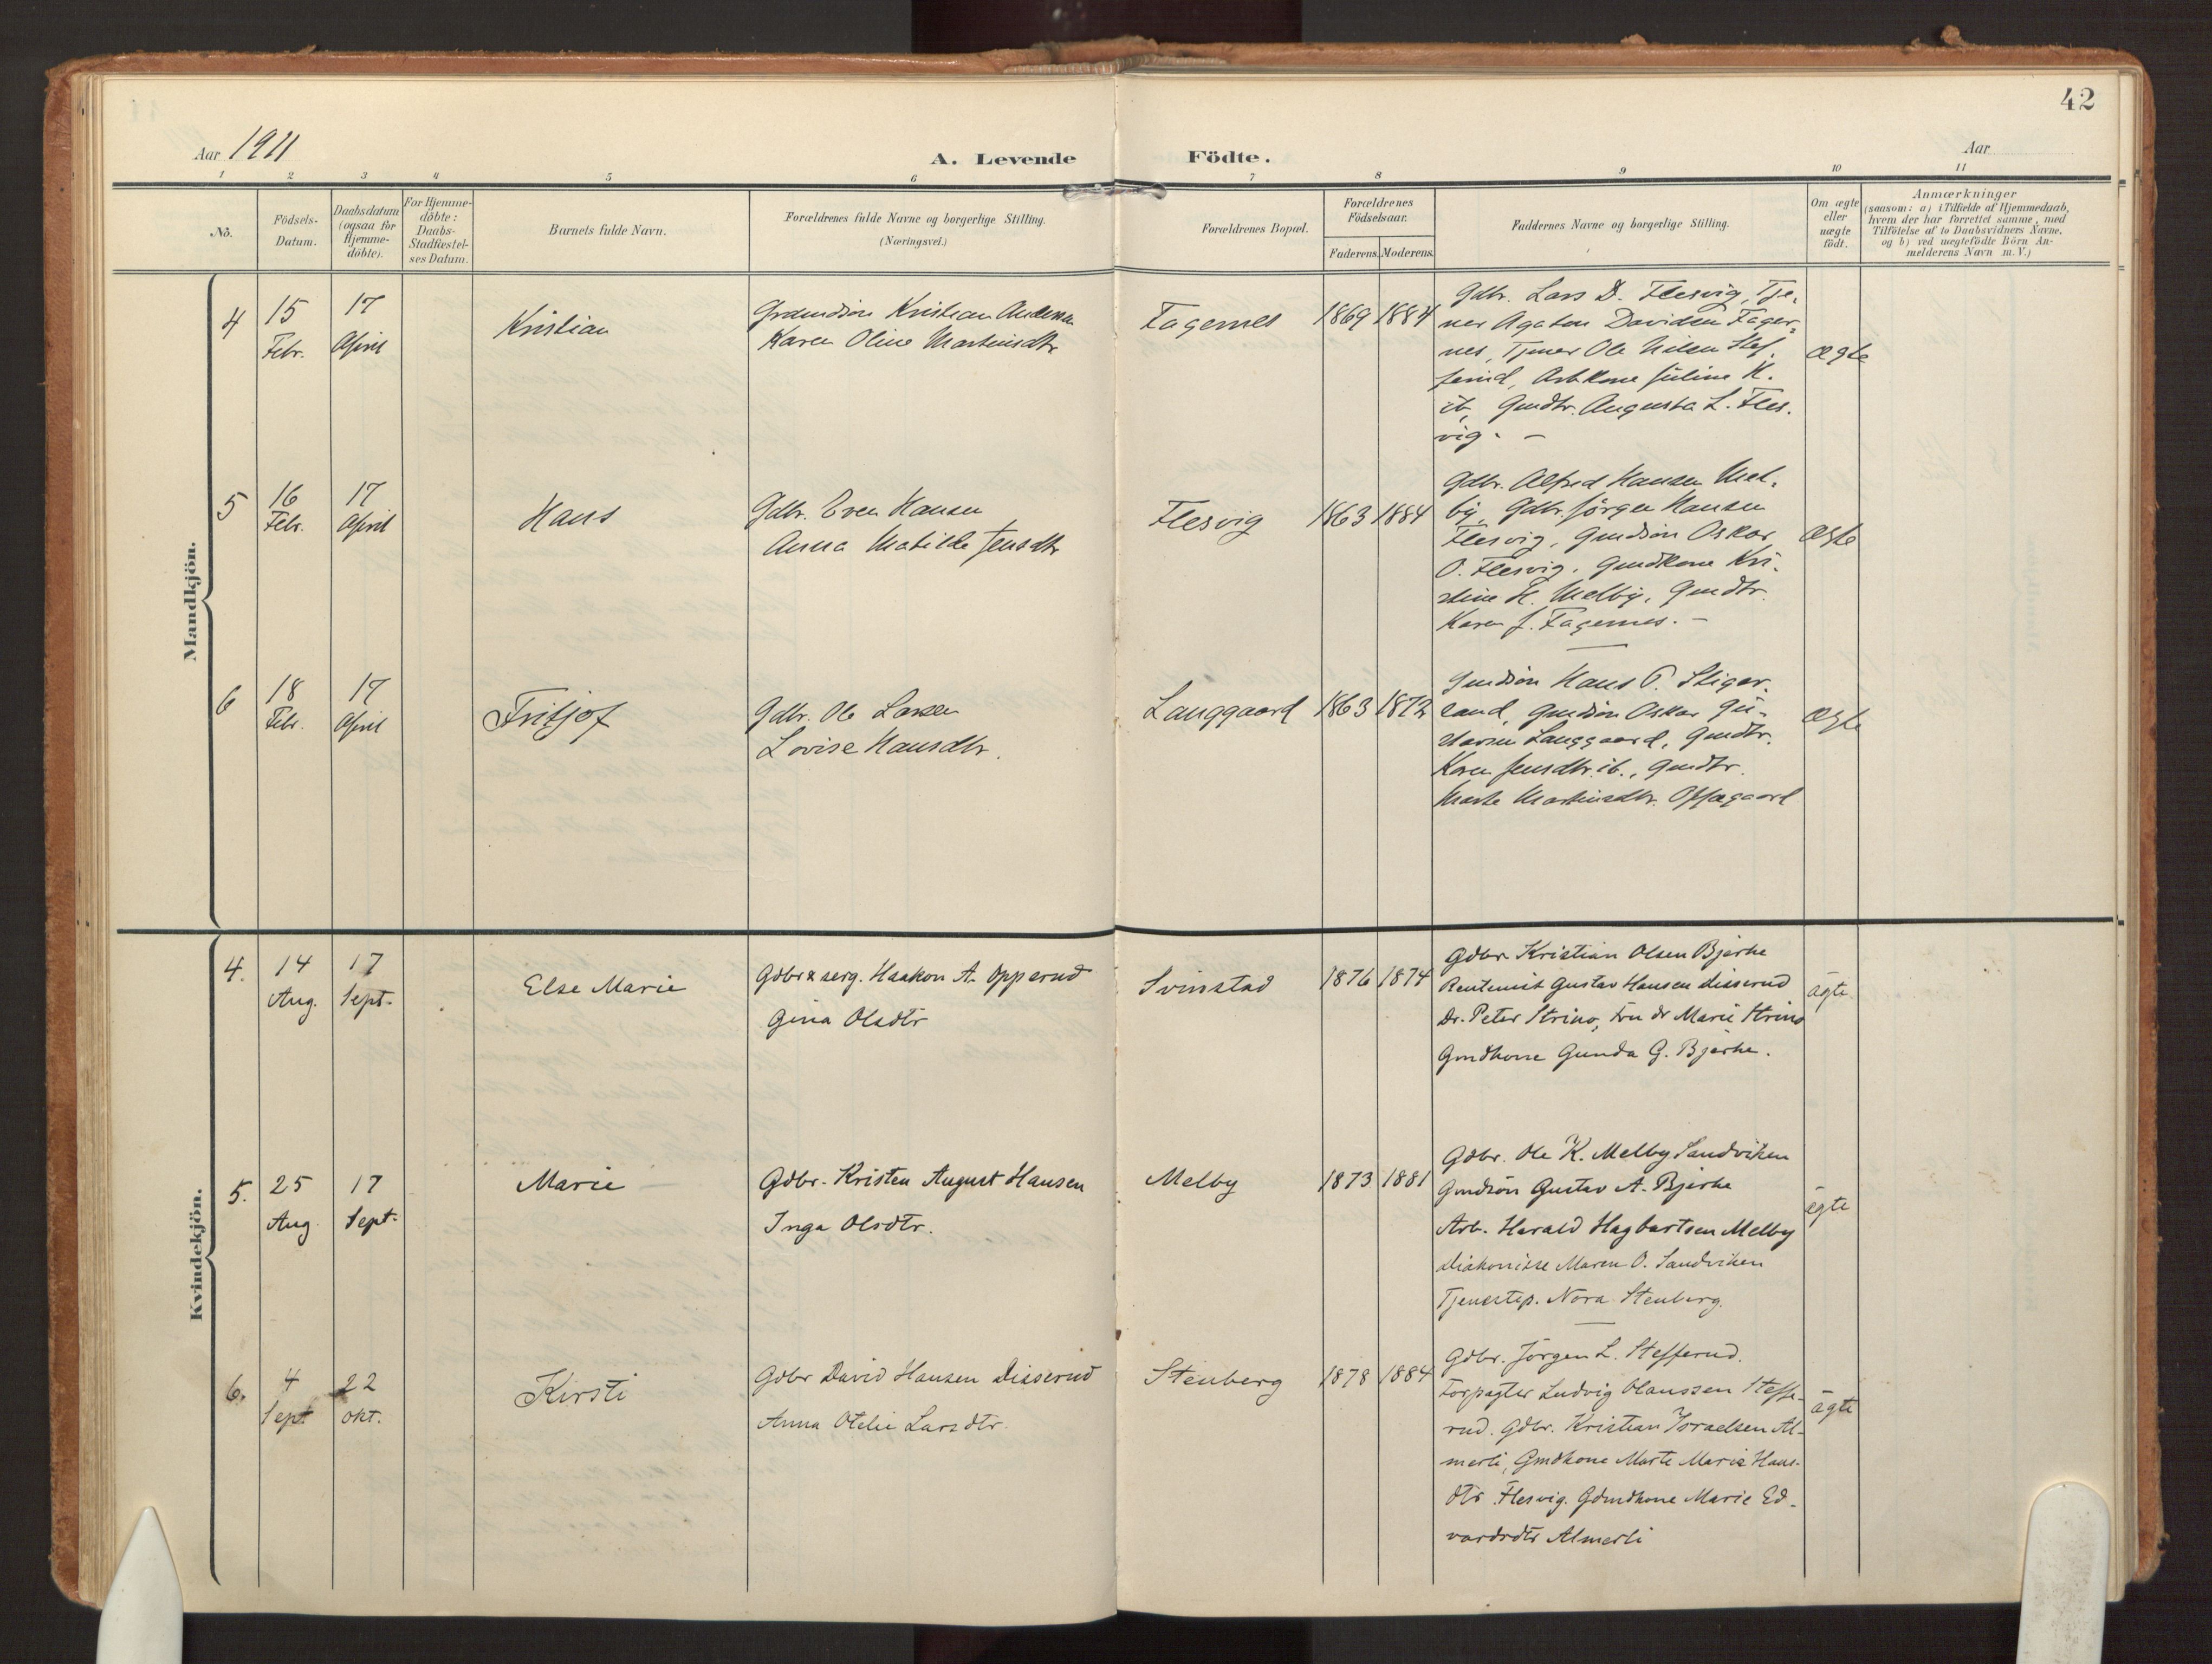 42
Aar 1911
A. Levende Födte.
Aar
1 2 3 4 5 6 7 8 9 10 11
No.
Födsels-
Datum.
Daabsdatum
(ogsaa for
Hjemme-
döbte).
For Hjemme-
döbte:
Daabs-
Stadfæstel-
ses Datum.
Barnets fulde Navn.
Forældrenes fulde Navne og borgerlige Stilling.
(Næringsvei.)
Forældrenes Bopæl.
Forældrenes
Födselsaar.
Faderens. Moderens.
Faddernes Navne og borgerlige Stilling.
Om ægte
eller
uægte
födt.
Anmærkninger
(saasom: a) i Tilfælde af Hjemmedaab,
hvem der har forrettet samme, med
Tilföielse af to Daabsvidners Navne,
og b) ved uægtefödte Börn An-
melderens Navn m. V.)
Mandkjön.
4
15
Febr.
17
April
Kristian
Kristian Andersen
Karen Oline Martinsdtr
Fagernes
1869 1884
Gdbr. Lars D. Flesvig, Tje-
ner Agaton Davidsen Fager-
nes, Tjener Ole Nilsen Stef-
ferud, Arbkone Juline K.
ib, Gmdtr. Augusta L. Fles-
vig. -
ægte
5
16
Febr.
17
April
Hans
Gdbr. Even Hansen
Anna Matilde Jensdtr
Flesvig
1863 1884
Gdbr. Alfred Hansen Mel-
by, Gdbr. Jörgen Hansen
Flesvig, Gmdsön Oskar
O. Flesvig, Gmdkone Kri-
stine H. Melby, Gmdtr.
Karen J. Fagernes. -
ægte
6
18
Febr.
17
April
Fritjof
Gdbr. Ole Larsen
Lovise Hansdtr.
Langgaard
1863 1872
Gmdsön Hans P. Stiger-
land, Gmdsön Oskar
Langgaard, Gmdtr.
Karen Jensdtr. ib., Gmdtr.
Marte Martinsdtr. Oppegaard
ægte
Kvindekjön.
4.
14
Aug.
17
Sept.
Else Marie
Gdbr & serg. Haakon A. Opperud
Gina Olsdtr
Svinstad
1876 1874
Gdbr Kristian Olsen Bjerke
Rentenist Gustav Hansen Disserud
Dr. Peter Strino, Fru dr Marie Strino
Gmdkone Gunda G. Bjerke.
ägte
5.
25
Aug
17
Sept.
Marie
Gdbr. Kristen August Hansen
Inga Olsdtr.
Melby
1873 1881
Gdbr. Ole K. Melby Sandviken
Gmdsön Gustav A. Bjerke
Arb. Harald Hagbartsen Melby
Diakonisse Maren O. Sandviken
Tjenestep. Nora Stenberg.
ägte
6.
4
Sept
22
okt.
Kirsti
Gdbr David Hansen Disserud
Anna Otelie Larsdtr.
Stenberg
1878 1884
Gdbr. Jörgen L. Stefferud.
Forpagter Ludvig Olaussen Steffe-
rud. Gdbr. Kristian Israelsen Al-
merli, Gmdkone Marte Marie Hans-
dtr Flesvig. Gdmdkone Marie Ed-
vardsdtr Almerli
ägte